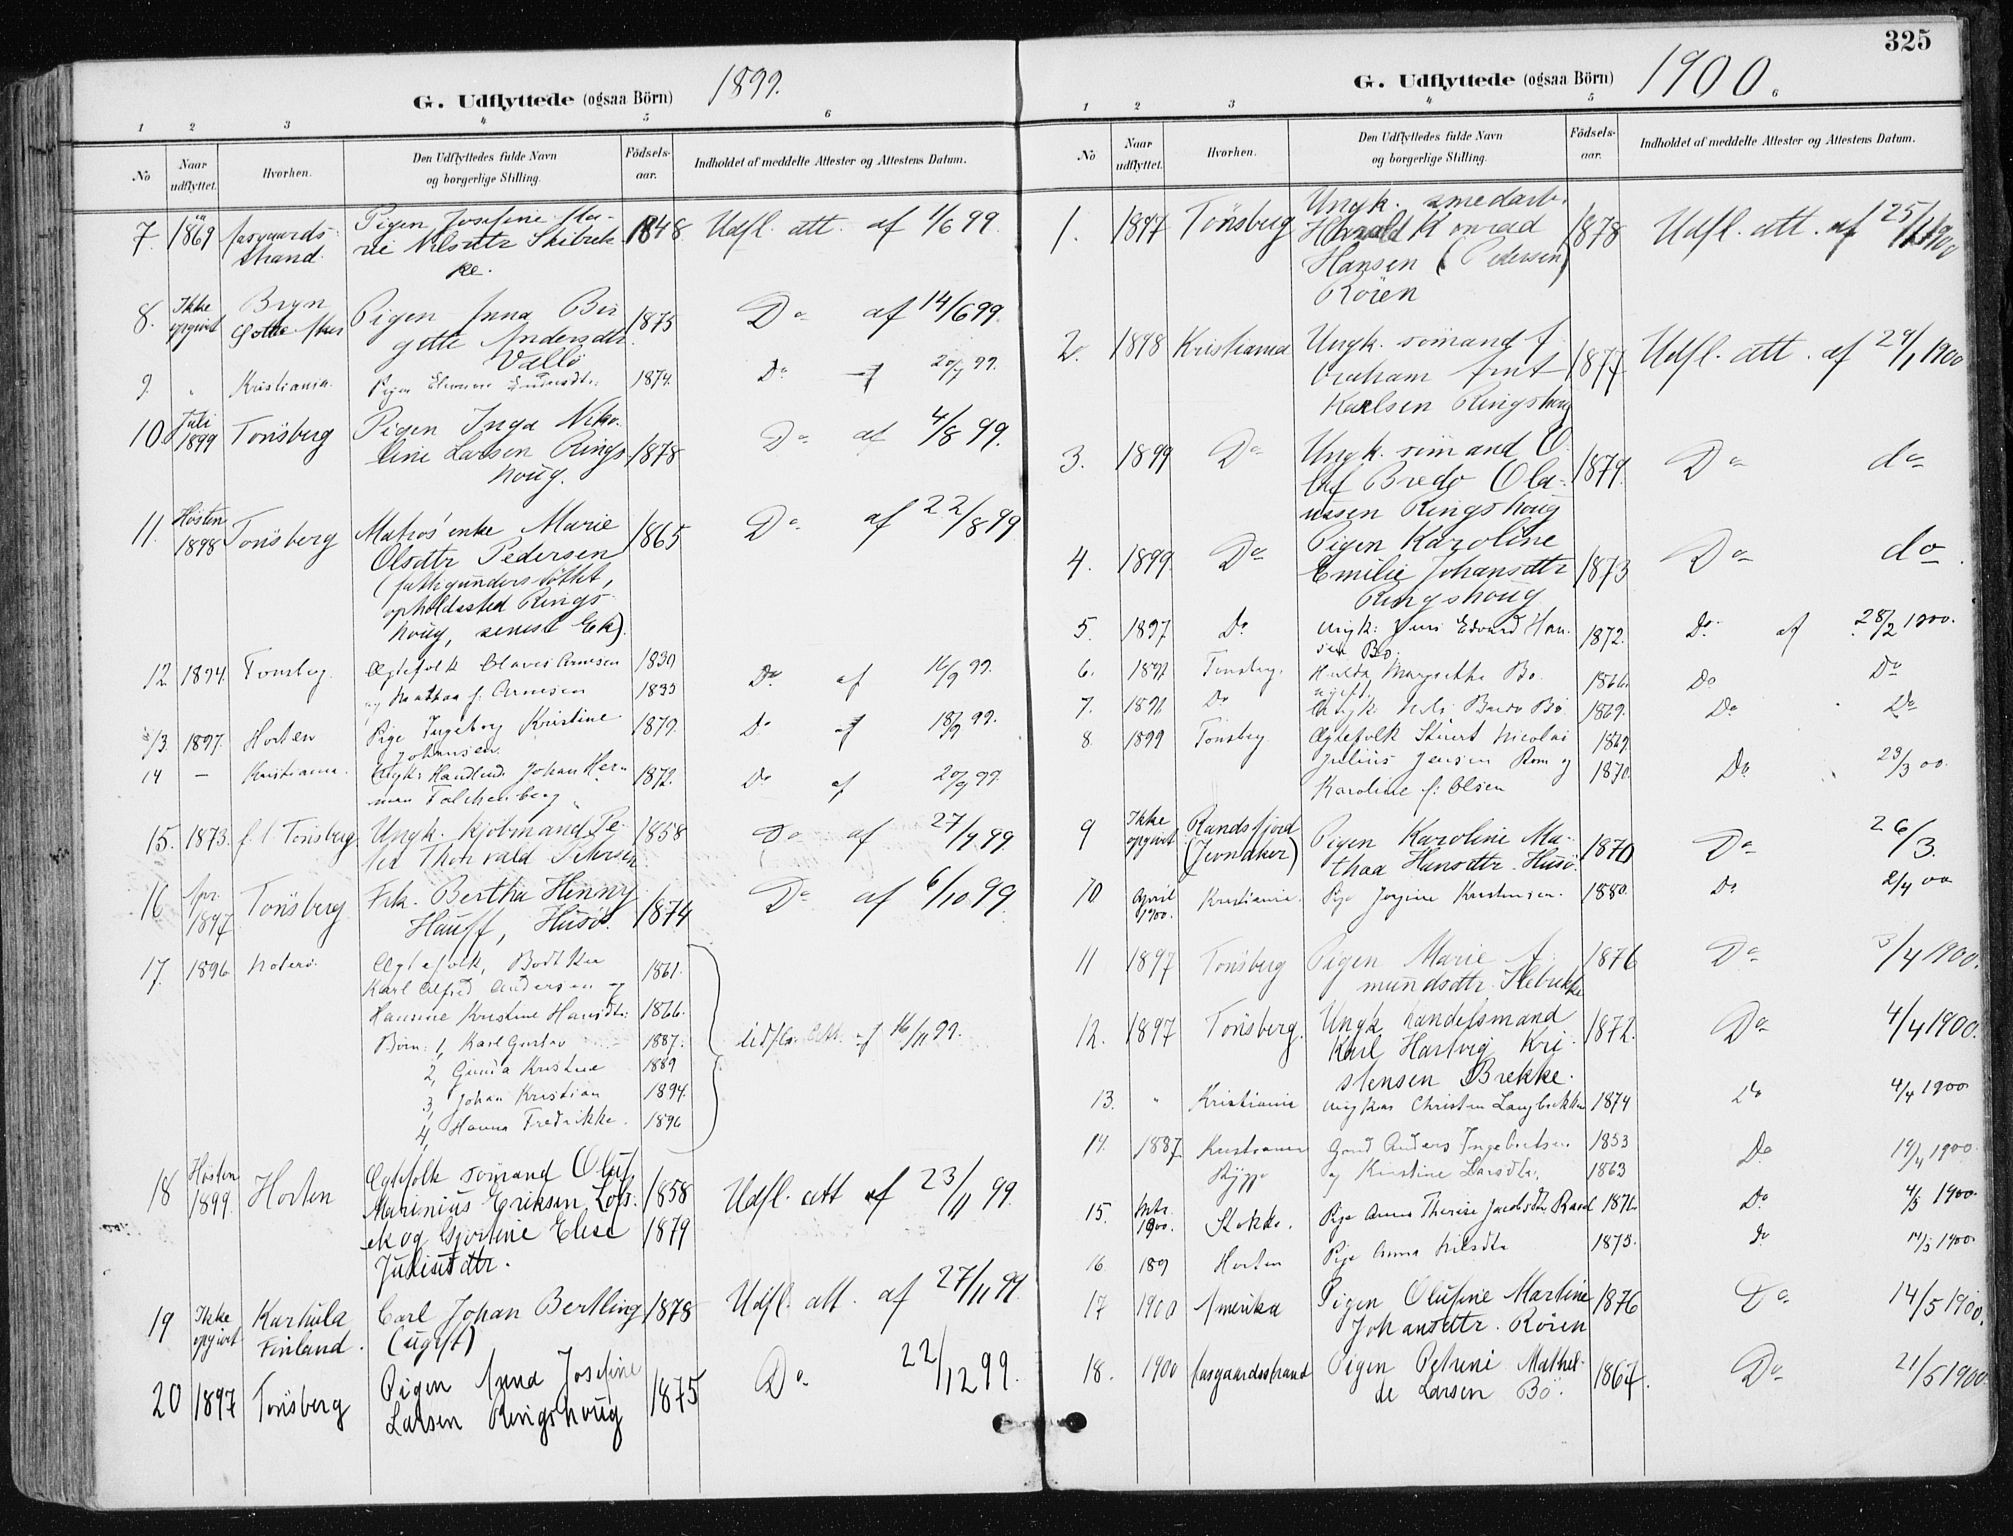 G. Udflyttede (ogsaa Börn) 1899.
1 2 3 4 5 6
No Naar udflyttet. Hvorhen. Den Udflyttedes fulde Navn og borgerlige Stilling. Födsels-aar. Indholdet af meddelte Attester og Attestens Datum.
7. 1869 Aasgaards- Pigen Josefine Ma- 1848 Udfl. att. af 1/6 99.
strand. rie Nilsdtr Skibrek
ke.
8. Ikke Bryn Pigen Anna Bir 1875 Do af 14/6 99.
opgivet gitte Andersdtr.
Vallö
9. " Kristiania. Pigen 1874. Do af 20/7 99.
10. Juli Tönsberg Pigen Inga Niko- 1878 Do af 4/8 99.
1899 line Larsen Rings
houg.
11. Hösten Tönsberg Matros'enke Marie 1865 Do af 22/8 99
1898 Olsdtr Pedersen
(fattigunderstöttet,
opholdssted Rings-
houg, senest Ek).
12 1894. Tönsberg. Ægtefolk Arnesen 1839 Do af 16/9 99.
og f. Arnesen 1833
13 1897. Horten Pige Ingeborg Kristine 1879. Do af 18/9 99.
Johansen.
14 — Kristiania. Ungk. Johan Her 1872. Do af 20/9 99.
man Falchenberg
15. 1873. f. l. Tönsberg Ungk. kjöbmand Pe- 1858 Do af 27/9 99
ter Thorvald Petersen
16 Apr. Tönsberg Frk. Bertha Henny 1874 Do af 6/10 99.
1897 Hauff, Husö.
17. 1896 Nöterö. Ægtefolk, Bödtker 1861.
Karl Alfred Andersen og
Hansine Kristine Hansdtr. 1866.
Börn: 1, Karl Gustav 1887. Udfl. Att. af 16/11 99.
2, Gunda Kristine 1889
3, Johan Kristian 1894.
4, Hanna Fredrikke. 1896
18 Hösten Horten Ægtefolk sömand Oluf 1858 Udfl. att af 23/11 99.
1899. Marinius Eriksen
ek og Elise 1879
Juliusdtr.
19 Ikke Karhula Carl Johan Bertling 1878 Udfl. att. af 27/11 99.
opgivet Finland. (ugift)
20 1897 Tönsberg Pigen Anna Josefine 1875 Do 22/12 99.
Larsen Ringshoug
325
G. Udflyttede (ogsaa Börn) 1900.
1 2 3 4 5 6
No Naar udflyttet. Hvorhen. Den Udflyttedes fulde Navn og borgerlige Stilling. Födsels-aar. Indholdet af meddelte Attester og Attestens Datum.
1. 1897 Tönsberg Ungk. smedarb. 1878 Udfl. att. af 25/1 1900
Harald Konrad
Hansen (Pedersen)
Rören
2. 1898 Kristiania Ungk. sömand A- 1877 Udfl. att. af 29/1 1900
braham Arnt
Karlsen Ringshoug
3. 1899 Do Ungk. sömand O- 1879. Do do
laf Bredo Ola-
ussen Ringshoug
4. 1899. Do Pigen Karoline 1873 Do do.
Emilie Johansdtr
Ringshoug
5. 1897 Do Ungk. Edvard Han- 1872. Do af 28/2 1900.
sen Bö.
6. 1897 Tönsberg. Hulda Margrethe Bö. 1866. Do Do
ugift.
7. 1891 Do Ungk. Nils Bö 1869. Do Do
8. 1899 Tönsberg Ægtefolk Nicolai 1869.
Julius Jensen Rom og 1870. Do 23/3 00.
Karoline f: Olsen
9 Ikke Randsfjord Pigen Karoline Ma- 1870 Do 26/3.
opgivet (Jevnaker) thea Hansdtr. Husö.
10 April Kristiania. Pige Jorgine Kristensen. 1880. Do 2/4 00
1900.
11 1897 Tönsberg Pigen Marie A- 1876 Do 3/4 1900.
mundsdtr. Slebrekke
12. 1897 Tönsberg. Ungk handelsmand 1872. Do 4/4 1900.
Karl Hartvig Kri-
stensen Brekke.
13. " Kristiania Ungkar Christen 1874 Do 4/4 1900
14. 1887 Kristiania Anders Ingebretsen 1853 Do 19/4 1900.
og Kristine Larsdtr. 1863
15. 1900. Stokke. Pige Anna Therese Jacobsdtr 1876 Do 4/5 1900.
16. 189 Horten Pige Anna Nilsdtr 1873. do 14/5 1900
17 1900 Amerika Pigen Olufine Martine 1876 Do 14/5 1900.
Johansdtr. Rören
18. 1900 Aasgaardsstrand Pigen Petrine Mathil- 1864. Do 21/5 1900
de Larsen Bö.